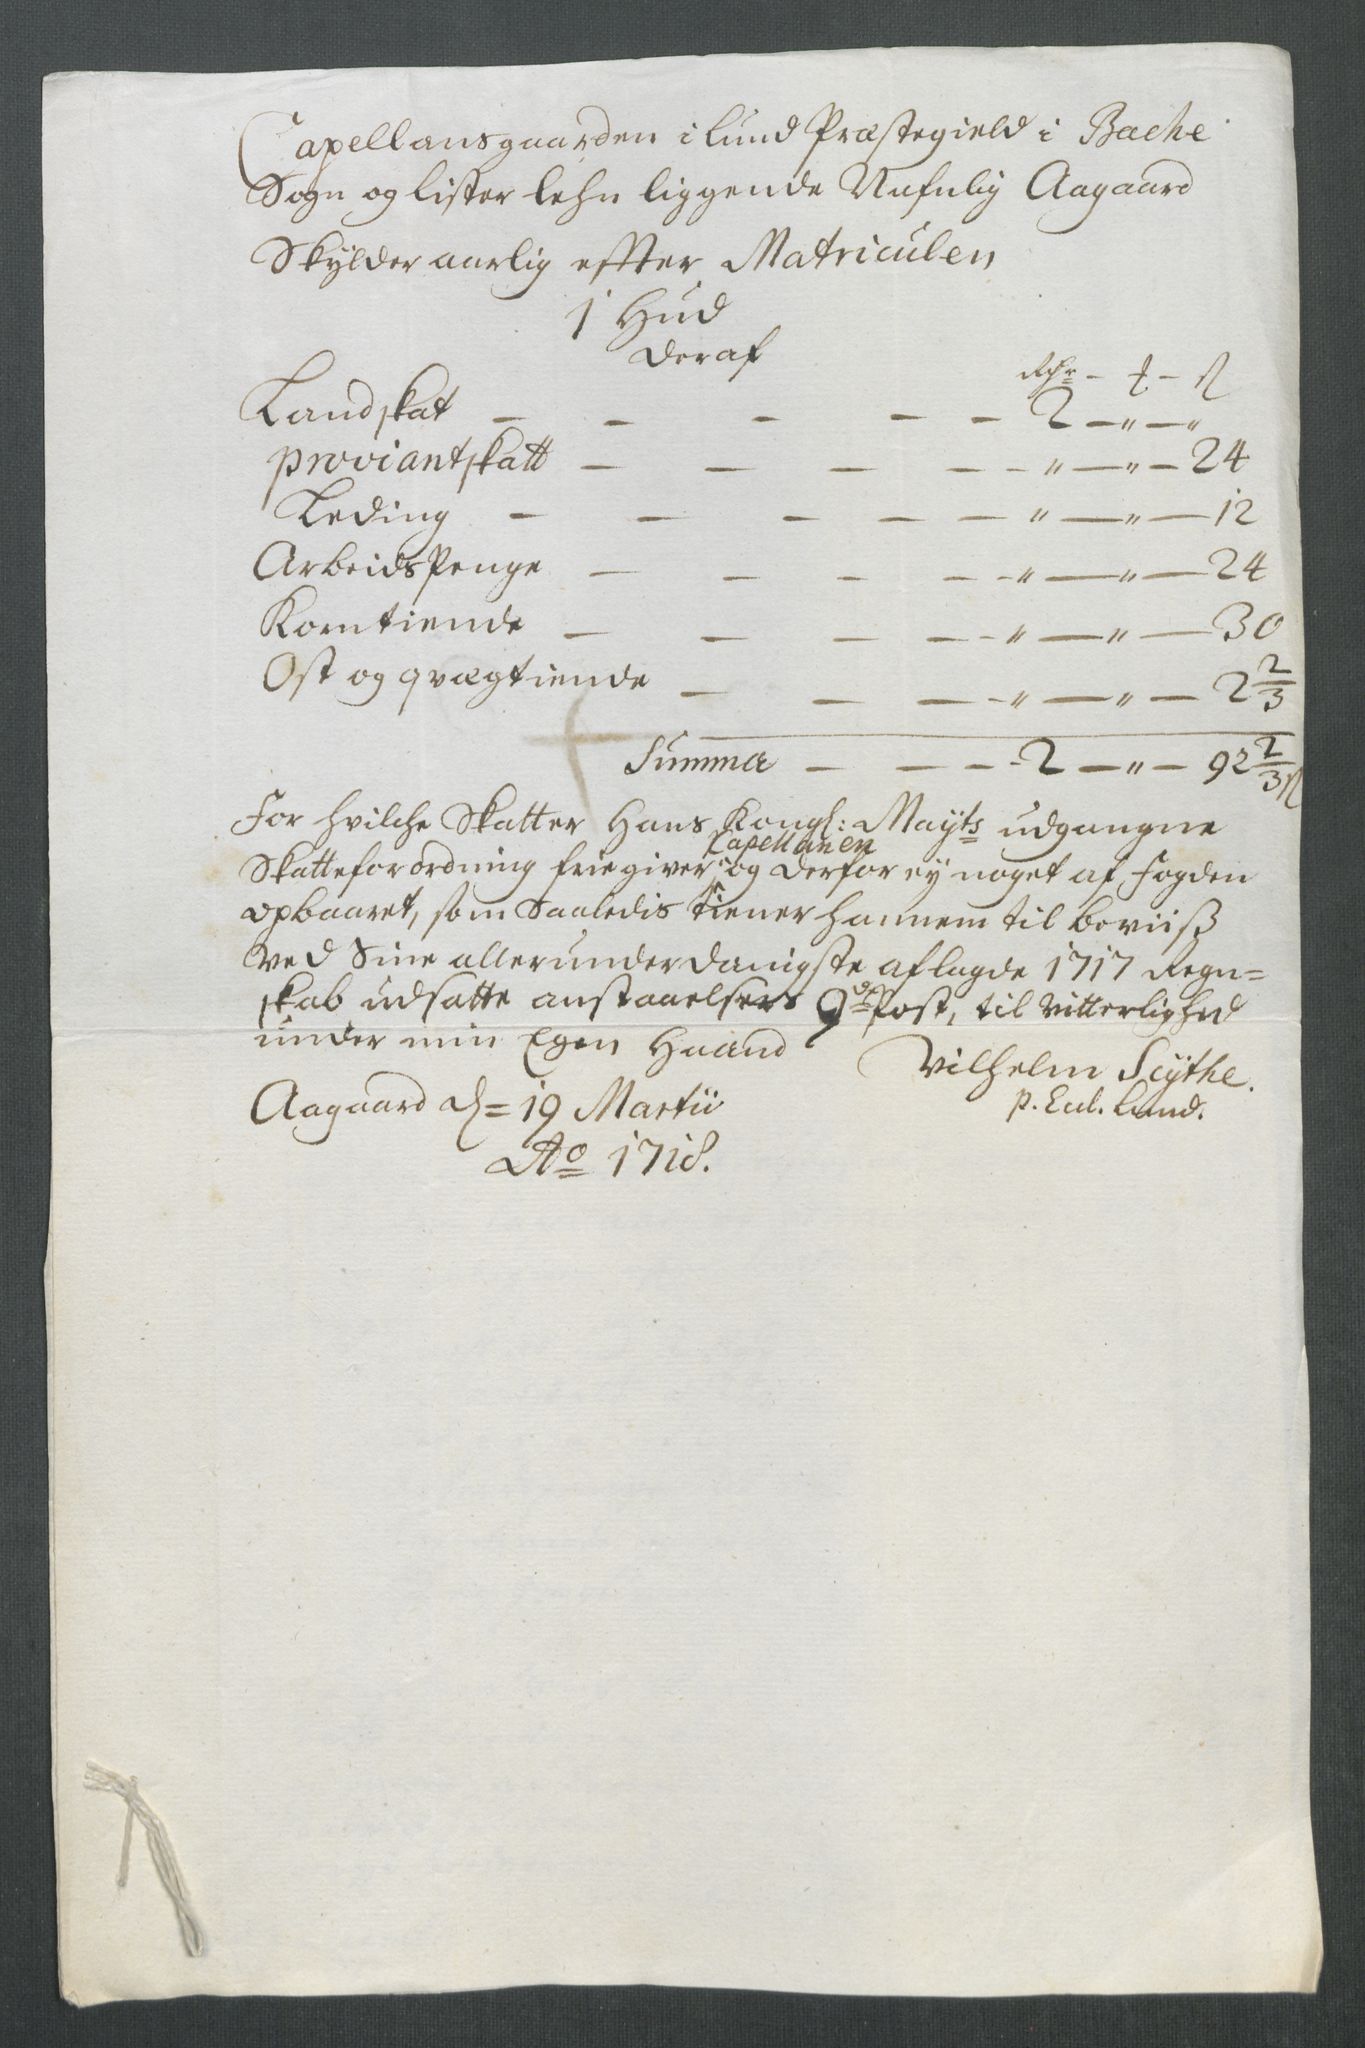 Capellansgaarden i Lund Præstegield i Bache
Sogn og Lister Lehn liggende Nafnlig Aagaard
Skÿlder aarlig effter Matriculen
1 Hud
Deraf
Rdr - - ß
Landskat - - - - - 2 - " - "
Proviantskatt - - - - - " - " - 24
Leding - - - - - " - " - 12
ArbeidsPenge - - - - - " - " - 24
Korntiende - - - - - " - " - 30
Ost og qvægtiende - - - - " - " - 2 2/3
Summa - - - - 2 - " - 92 2/3 ß
For hvilche Skatter Hans Kongl: Maÿts udgangne
Capellanen
Skatteforordning friegiver, og derfor eÿ noget af Fogden
opbaaret, som Saaledis tiener hannem til beviiß
ved Sine allerunderdanigste aflagde 1717 Regn=
skab udsatte anstaaelsers 9de Post, til Vitterlighed
under min Egen Haand
Vilhelm Scÿthe.
P. Eccl. Lund.
Aagaard d= 19 Martii
Ao 1718.